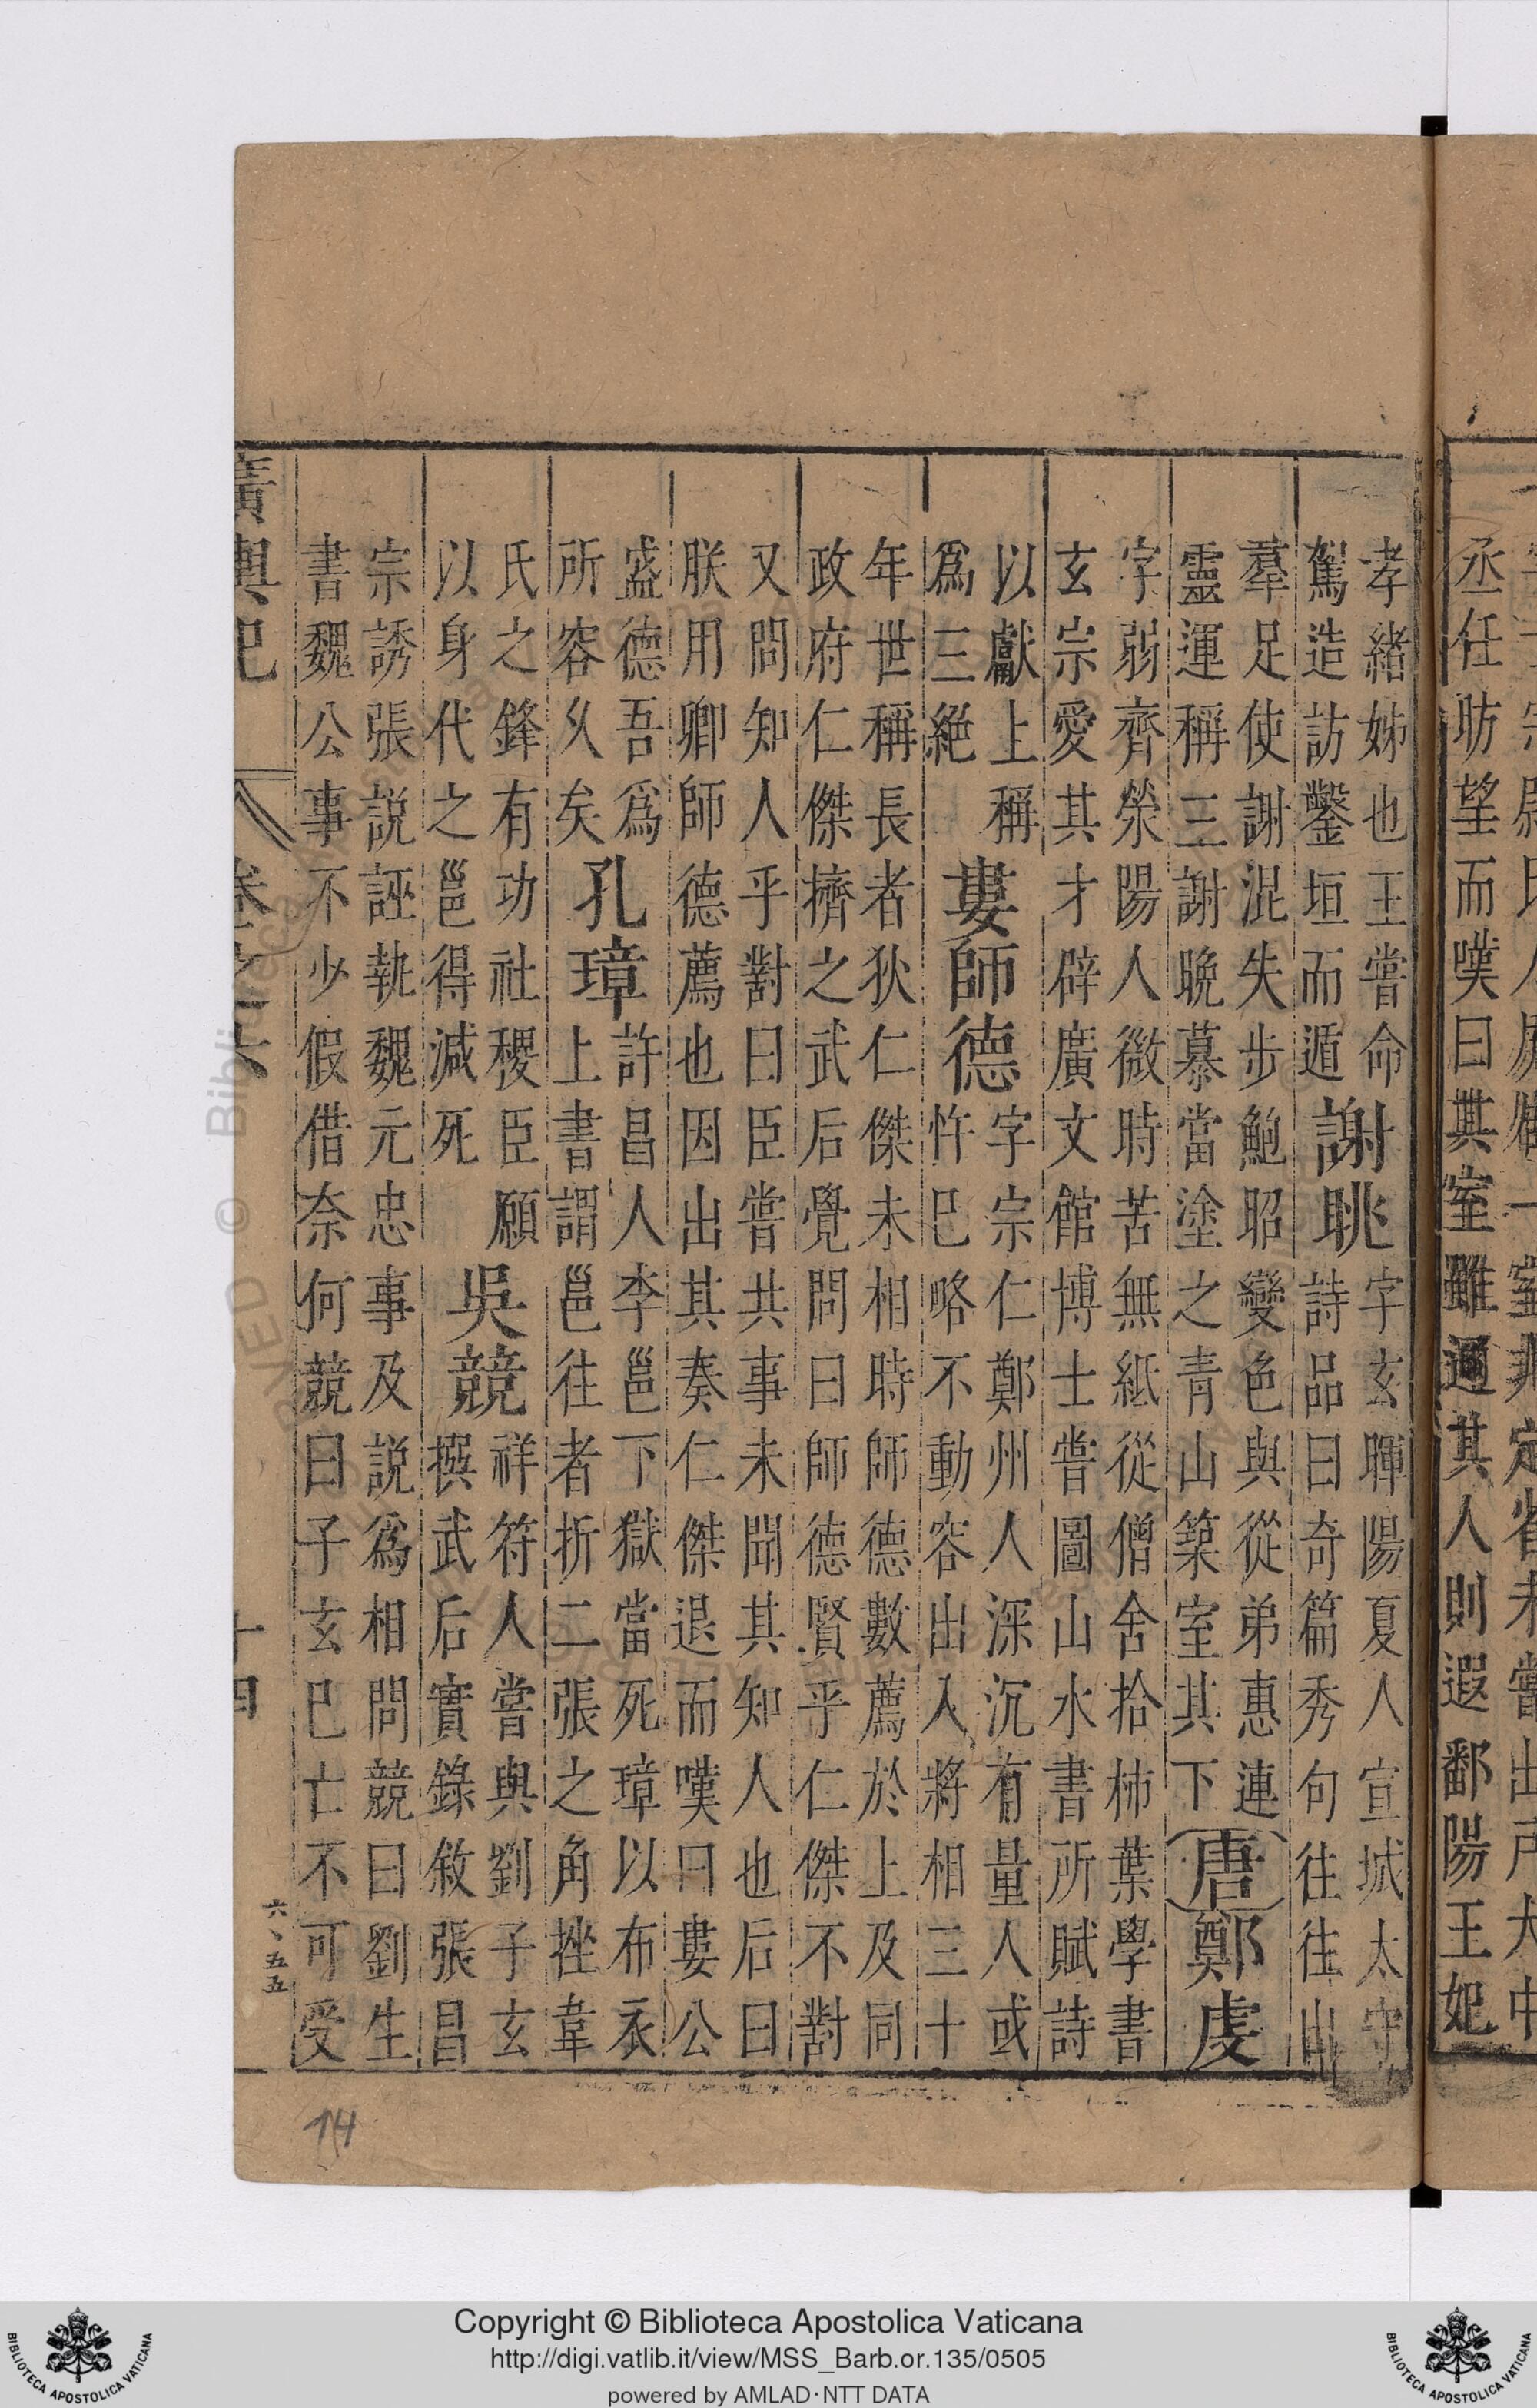 丞任昉望而嘆曰其室雖邇其人則遐鄱陽王妃
孝緒姊也王嘗命
駕造訪鑿垣而遁
謝眺
字玄暉陽夏人宣城太守
詩品曰奇篇秀句往往出
羣足使謝混失步鮑昭變色與從弟惠連
靈運稱三謝晚慕當塗之青山築室其下
唐
鄭虔
字弱齊滎陽人微時苦無紙從僧舍拾柿葉學書
玄宗愛其才辟廣文館博士嘗圖山水書所賦詩
以獻上稱
爲三絕
婁師德
字宗仁鄭州人深沉有量人或
忤巳略不動容出入將相三十
年世稱長者狄仁傑未相時師德數薦於上及同
政府仁傑擠之武后覺問曰師德賢乎仁傑不對
又問知人乎對曰臣嘗共事未聞其知人也后曰
朕用卿師德薦也因出其奏仁傑退而嘆曰婁公
盛德吾爲
所容乆矣
孔璋
許昌人李邕下獄當死璋以布衣
上書謂邕往者折二張之角挫韋
氏之鋒有功社稷臣願
以身代之邕得減死
吳競
祥符人嘗與劉子玄
撰武后實錄敘張昌
宗誘張説誣執魏元忠事及説爲相問競曰劉生
書魏公事不少假借奈何競曰子玄巳亡不可受
廣輿記
卷之六
十四
六、五五
14
Copyright © Biblioteca Apostolica Vaticana
http://digi.vatlib.it/view/MSS_Barb.or.135/0505
powered by AMLAD·NTT DATA
BIBLIOTECA APOSTOLICA VATICANA
BIBLIOTECA APOSTOLICA VATICANA